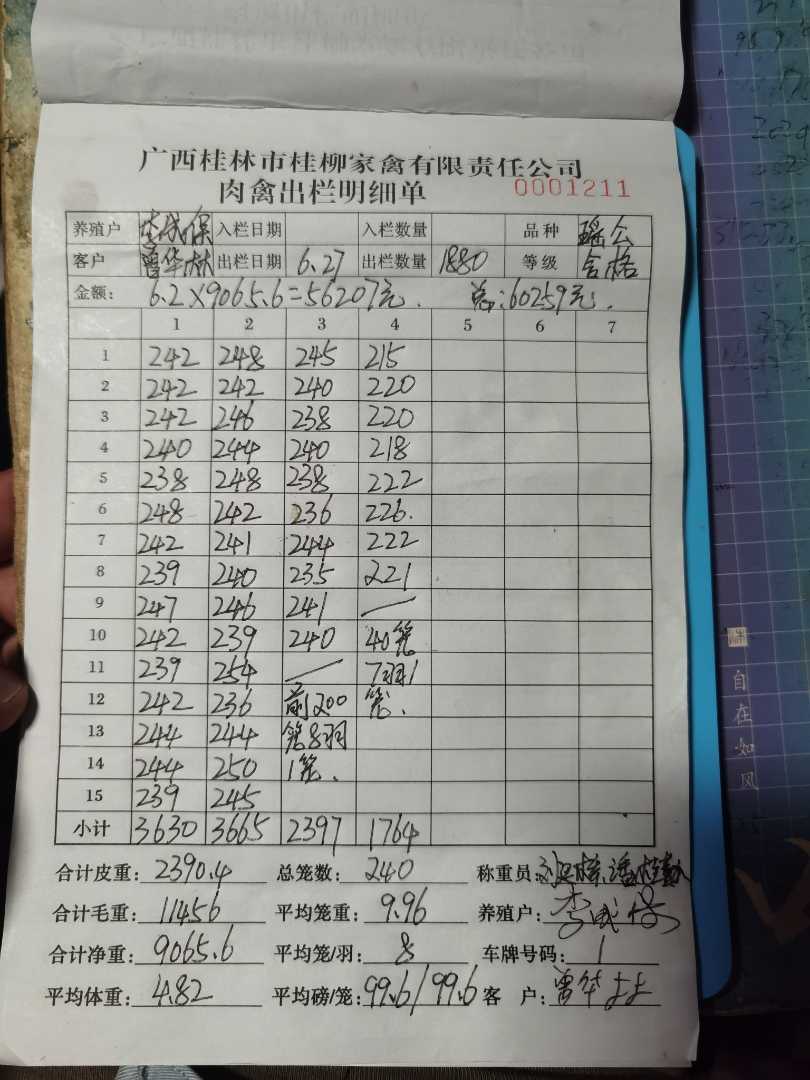 广西桂林市桂柳家禽有限责任公司
肉禽出栏明细单 0001211
养殖户 李成保 入栏日期 入栏数量 品种 瑶公
客户 曾华林 出栏日期 6.27 出栏数量 1880 等级 合格
金额: 6.2×9065.6=56207元. 总:60259元.
1 2 3 4 5 6 7
1 242 248 245 215
2 242 242 240 220
3 242 246 238 220
4 240 244 240 218
5 238 248 238 222
6 248 242 236 226.
7 242 241 244 222
8 239 240 235 221
9 247 246 241 —
10 242 239 240 40笼
11 239 254 — 7羽1
12 242 236 前200 笼.
13 244 244 笼8羽
14 244 250 1笼.
15 239 245
小计 3630 3665 2397 1764
合计皮重: 2390.4 总笼数: 240 称重员:
合计毛重: 11456 平均笼重: 9.96 养殖户: 李成保
合计净重: 9065.6 平均笼/羽: 8 车牌号码: 1
平均体重: 4.82 平均磅/笼: 99.6/99.6 客 户: 曾华林
自在如风